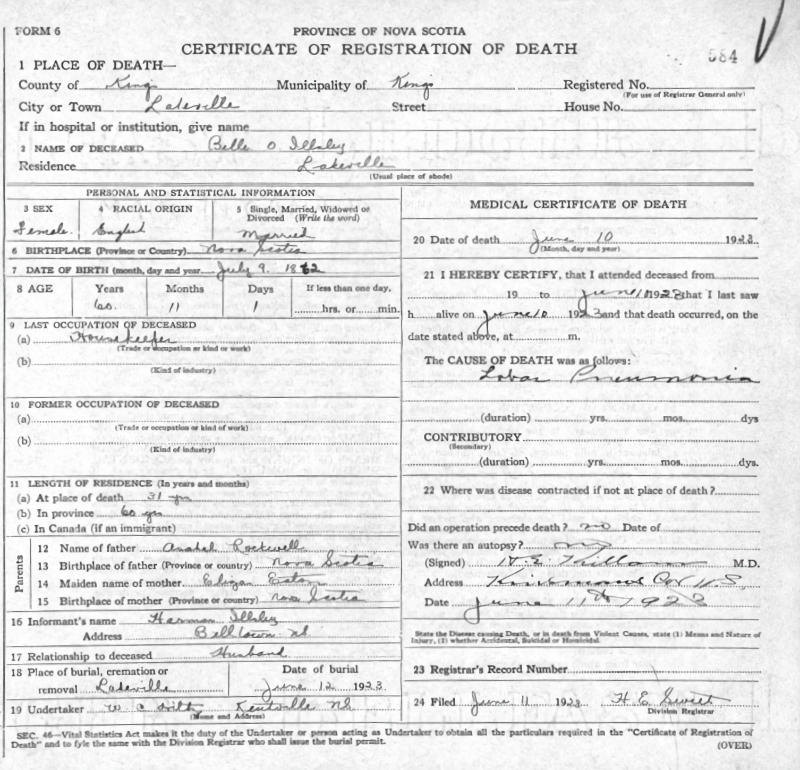 FORM 6
PROVINCE OF NOVA SCOTIA
CERTIFICATE OF REGISTRATION OF DEATH
584
1 PLACE OF DEATH—
County of Kings Municipality of Kings Registered No.
(For use of Registrar General only)
City or Town Lakeville Street House No.
If in hospital or institution, give name
2 NAME OF DECEASED Belle O Illsley
Residence Lakeville
(Usual place of abode)
PERSONAL AND STATISTICAL INFORMATION
3 SEX 4 RACIAL ORIGIN 5 Single, Married, Widowed or Divorced (Write the word)
Female English Married
6 BIRTHPLACE (Province or Country) Nova Scotia
7 DATE OF BIRTH (month, day and year July 9. 1862
8 AGE Years Months Days If less than one day,
60. 11 1 hrs. or min.
9 LAST OCCUPATION OF DECEASED
(a) Housekeeper
(Trade or occupation or kind or work)
(b)
(Kind of industry)
10 FORMER OCCUPATION OF DECEASED
(a)
(Trade or occupation or kind of work)
(b)
(Kind of industry)
11 LENGTH OF RESIDENCE (In years and months)
(a) At place of death 31 yrs
(b) In province 60 yrs
(c) In Canada (if an immigrant)
Parents
12 Name of father Rockwell
13 Birthplace of father (Province or country) Nova Scotia
14 Maiden name of mother Eaton
15 Birthplace of mother (Province or country) Nova Scotia
16 Informant's name Harman Illsley
Address NS
17 Relationship to deceased Husband
18 Place of burial, cremation or Date of burial
removal Lakeville June 12 1923
19 Undertaker W C Smith Kentville NS
(Name and Address)
MEDICAL CERTIFICATE OF DEATH
20 Date of death June 10 1923
(Month, day and year)
21 I HEREBY CERTIFY, that I attended deceased from
19 to June 10 1923 that I last saw
h alive on June 10 1923 and that death occurred, on the
date stated above, at m.
The CAUSE OF DEATH was as follows:
Lobar Pneumonia
(duration) yrs. mos. dys
CONTRIBUTORY
(Secondary)
(duration) yrs. mos. dys.
22 Where was disease contracted if not at place of death?
Did an operation precede death? no Date of
Was there an autopsy? no
(Signed) H.E. Killam M.D.
Address N.S.
Date June 11th 1923
State the Disease causing Death, or in death from Violent Causes, state (1) Means and Nature of
Injury, (2) whether Accidental, Suicidal or Homicidal.
23 Registrar's Record Number
24 Filed June 11 1923 H E Sweet
Division Registrar
SEC. 46—Vital Statistics Act makes it the duty of the Undertaker or person acting as Undertaker to obtain all the particulars required in the "Certificate of Registration of
Death" and to fyle the same with the Division Registrar who shall issue the burial permit.
(OVER)